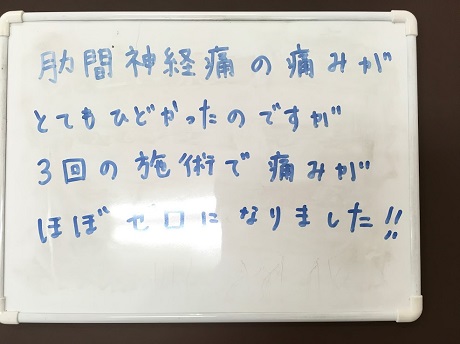 肋間神経痛の痛みが
とてもひどかったのですが
3回の施術で痛みが
ほぼゼロになりました!!